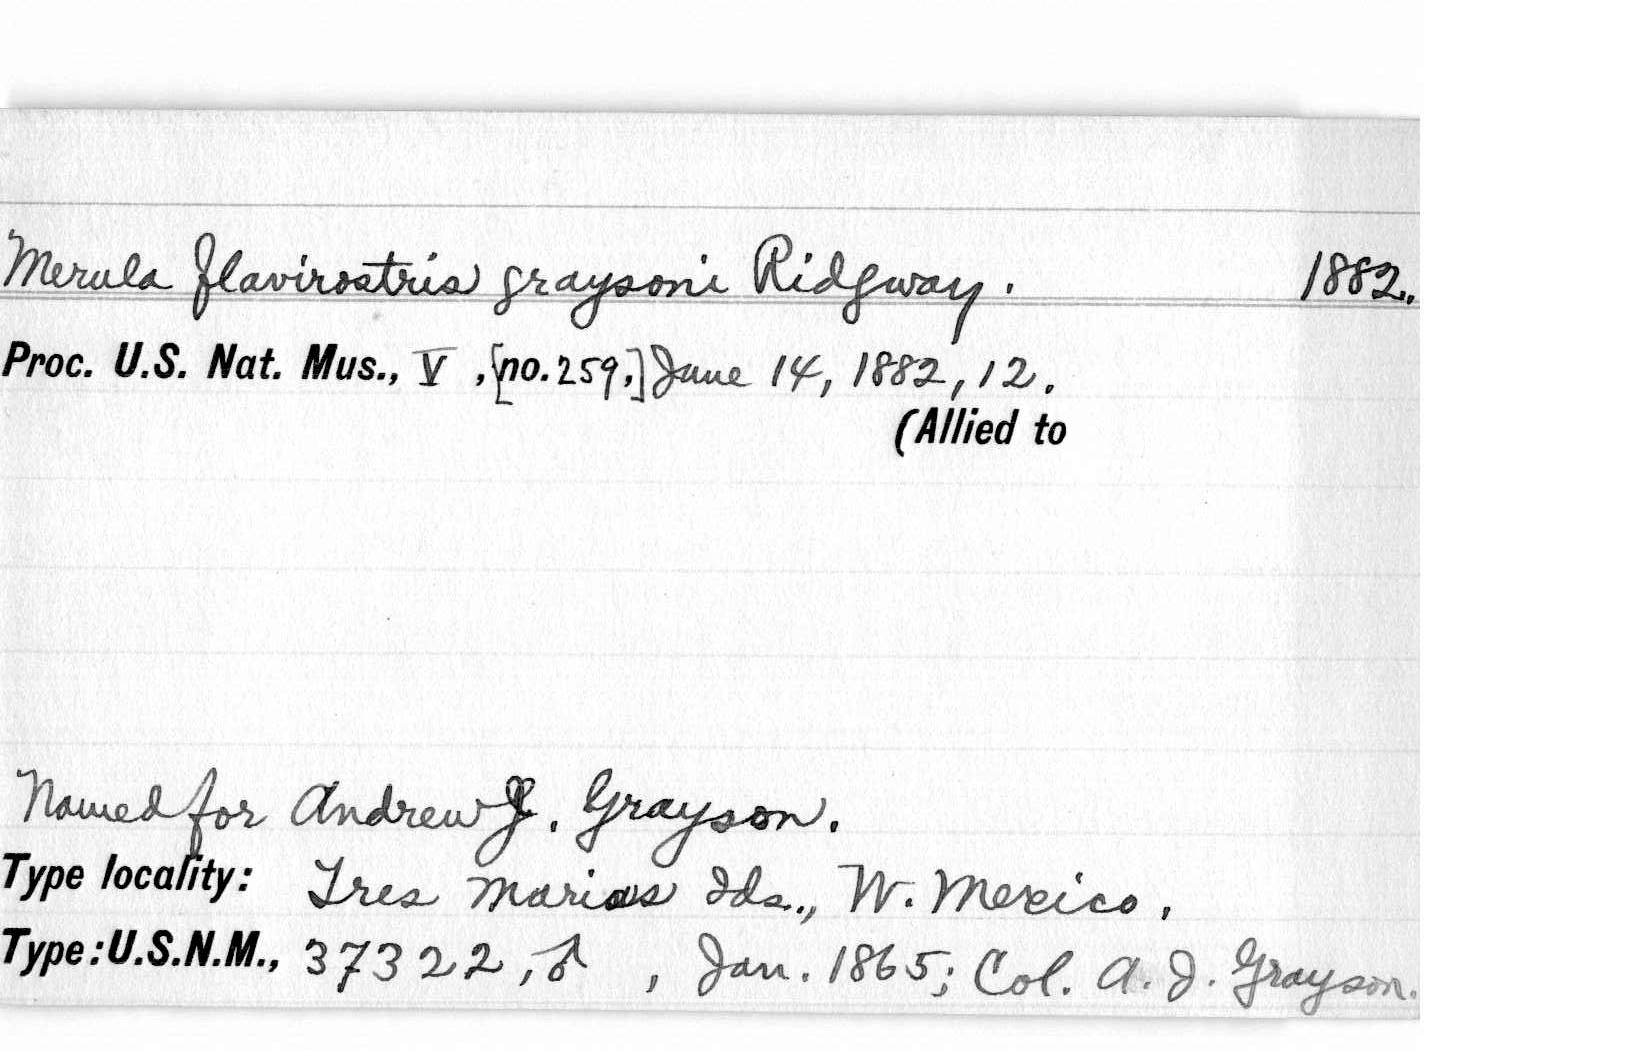 Merula flavirostris graysoni Ridgway. 1882.
Proc. U.S. Nat. Mus., V, [no. 259,] June 14, 1882, 12.
(Allied to
Named for Andrew J. Grayson.
Type locality: Tres Marias Ids., W. Mexico.
Type: U.S.N.M., 37322, ♂, Jan. 1865; Col. A. J. Grayson.